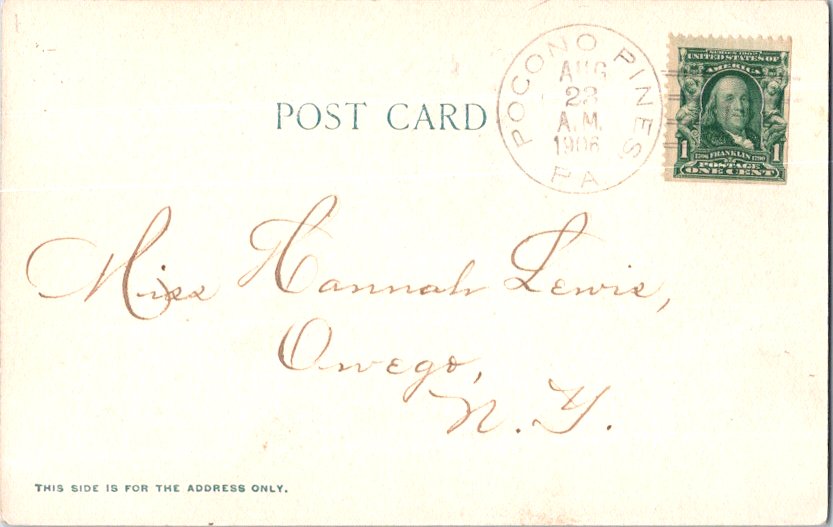 POST CARD
POCONO PINES
AUG
23
A.M.
1906
PA
SERIES 1902
UNITED STATES OF
AMERICA
1 1706 FRANKLIN 1790 1
POSTAGE
ONE CENT
Miss Hannah Lewis,
Owego,
N. Y.
THIS SIDE IS FOR THE ADDRESS ONLY.